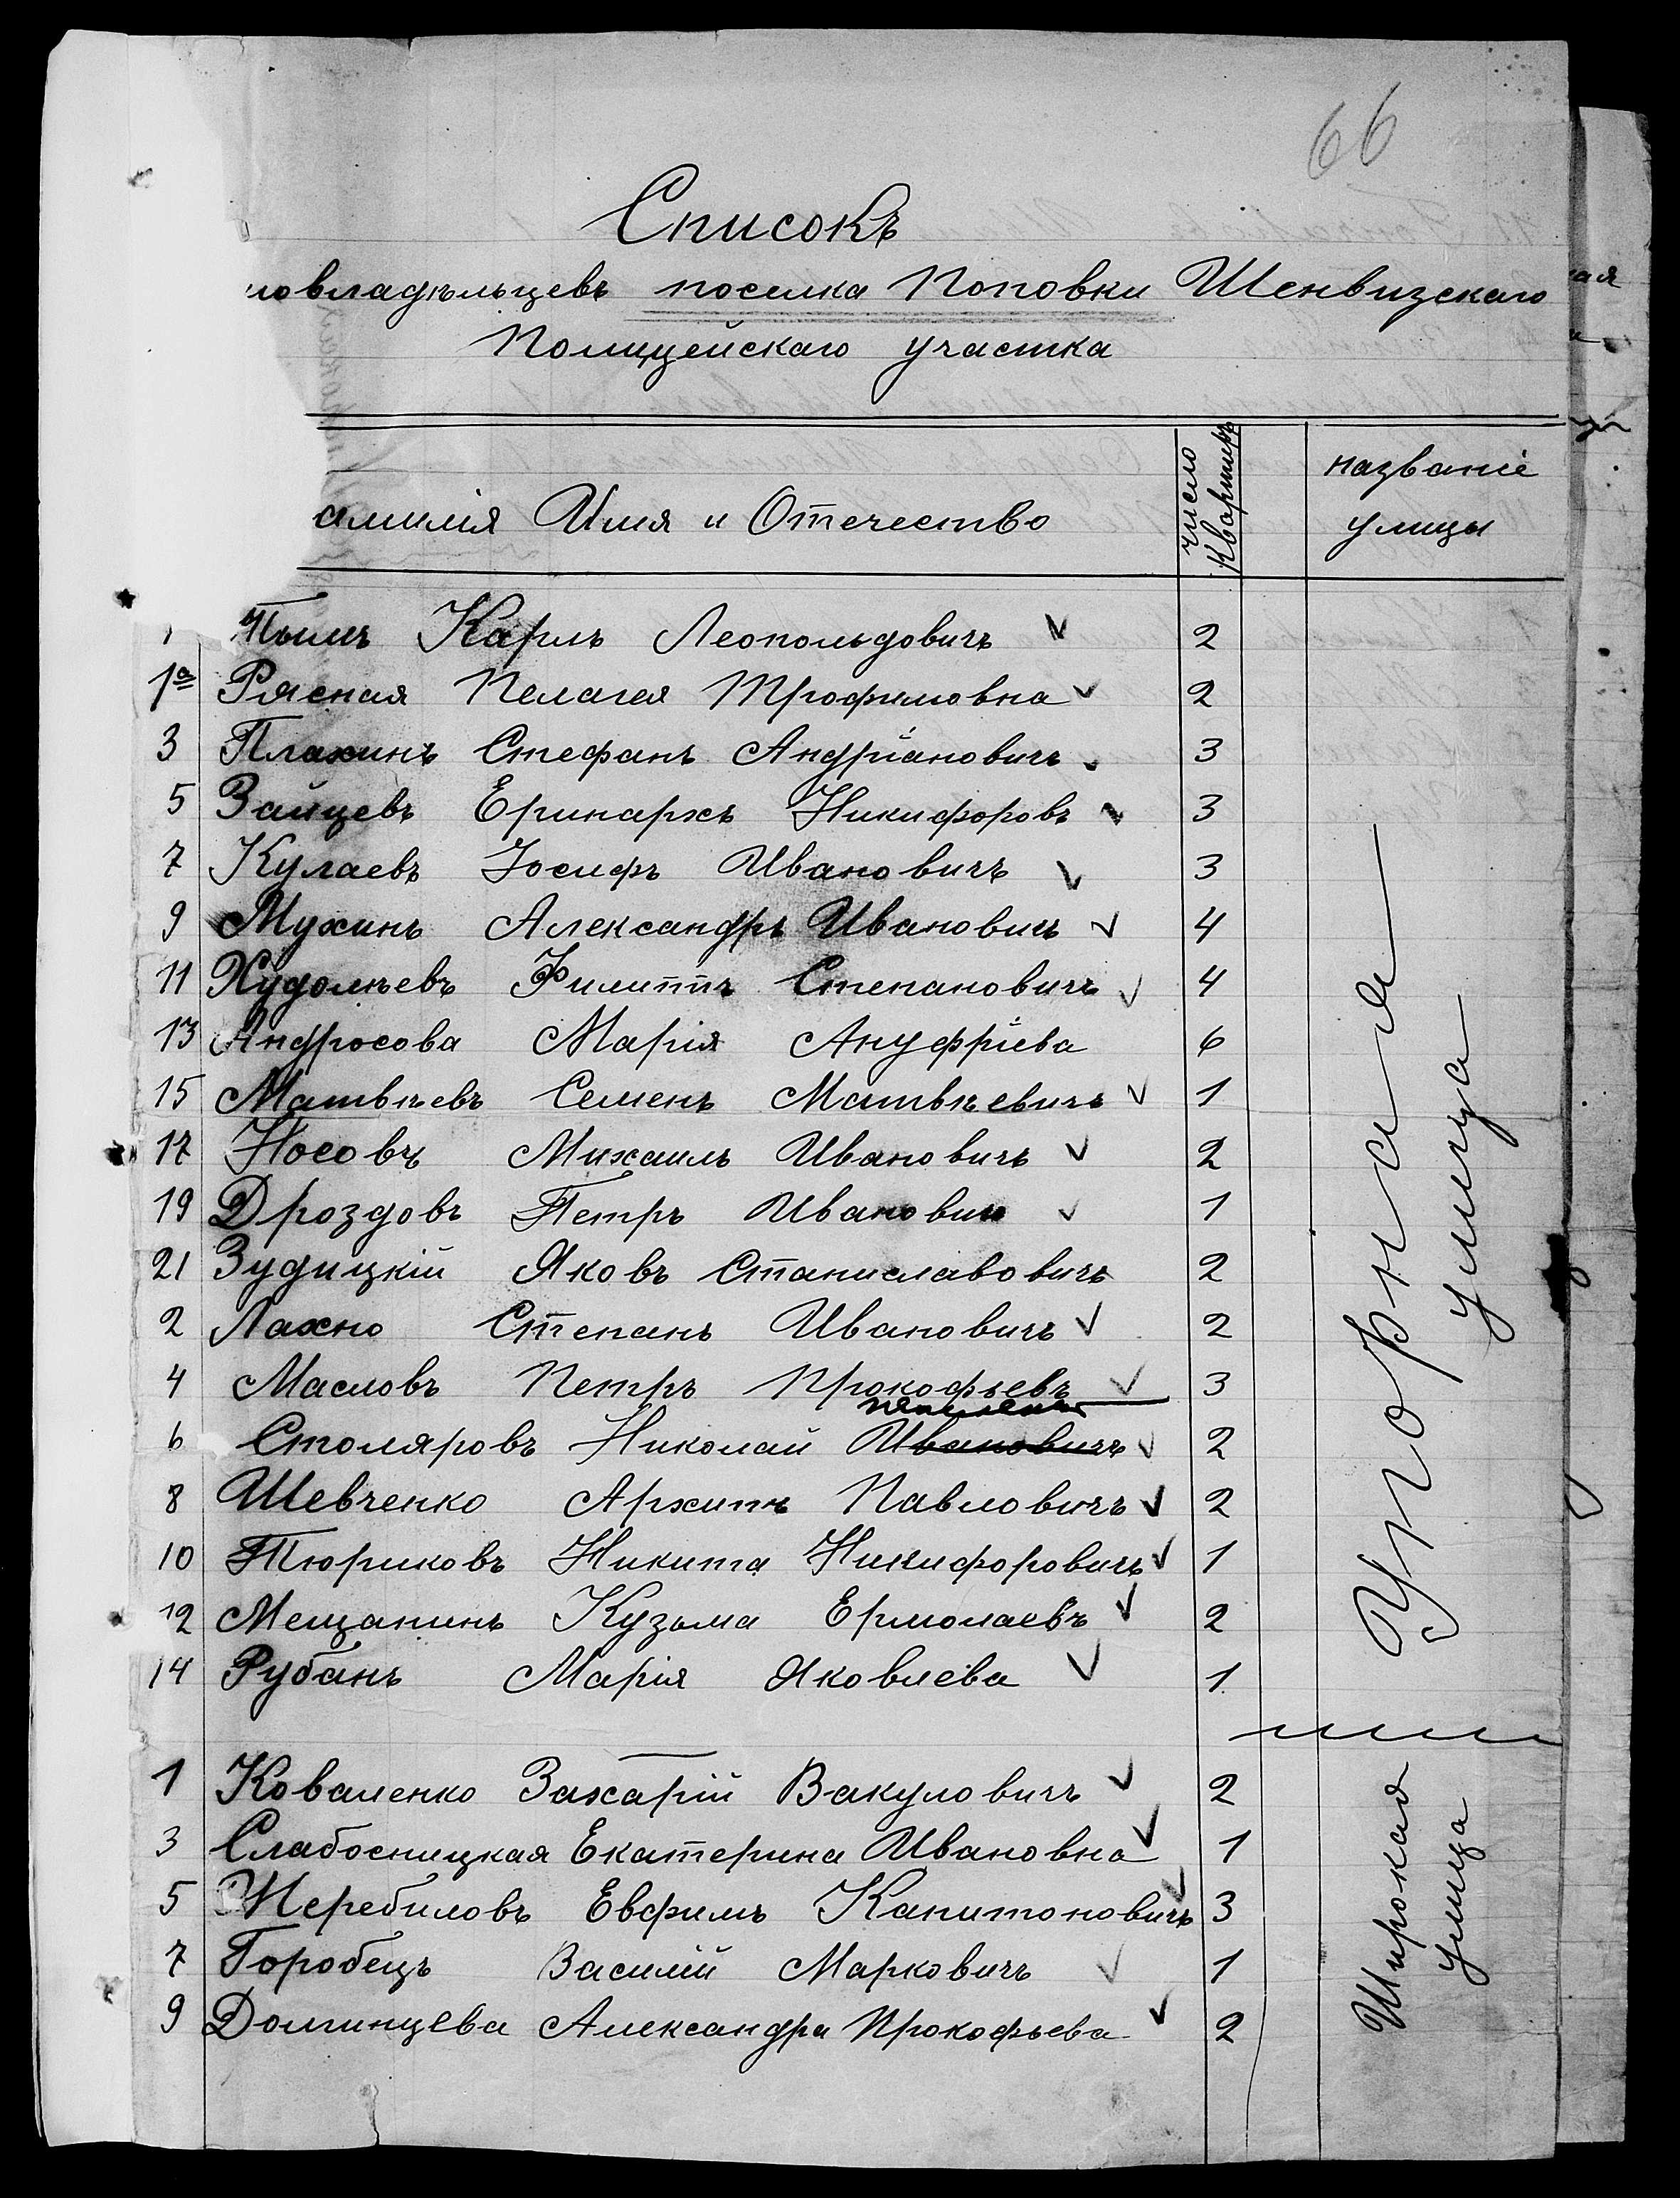 66
Списокъ
ловладѣльцевъ поселка Поповки Шенвизскаго
Полицейскаго участка
амилія Имя и Отчество
число квартиръ
названіе
улицы
1 Карлъ Леопольдовичъ 2
1а Рясная Пелагея Трофимовна 2
3 Плахинъ Стефанъ Андріановичъ 3
5 Зайцевъ Еринархъ Никифоровъ 3
7 Кулаевъ Іосифъ Ивановичъ 3
9 Мухинъ Александръ Ивановичъ 4
11 Худолѣевъ Филиппъ Степановичъ 4
13 Андросова Марія Ануфріева 6
15 Матвѣевъ Семенъ Матвѣевичъ 1
17 Носовъ Михаилъ Ивановичъ 2
19 Дроздовъ Петръ Ивановичъ 1
21 Зудицкій Яковъ Станиславовичъ 2
2 Лахно Степанъ Ивановичъ 2
4 Масловъ Петръ Прокофьевъ 3
6 Столяровъ Николай Ивановичъ 2
8 Шевченко Архипъ Павловичъ 2
10 Тюриковъ Никита Никифоровичъ 1
12 Мещанинъ Кузьма Ермолаевъ 2
14 Рубанъ Марія Яковлева 1
Угорная
улица
1 Коваленко Захарій Вакуловичъ 2
3 Слабосницкая Екатерина Ивановна 1
5 Жеребиловъ Евфимъ Капитоновичъ 3
7 Горобецъ Василій Марковичъ 1
9 Долгинцева Александра Прокофьева 2
Широкая
улица